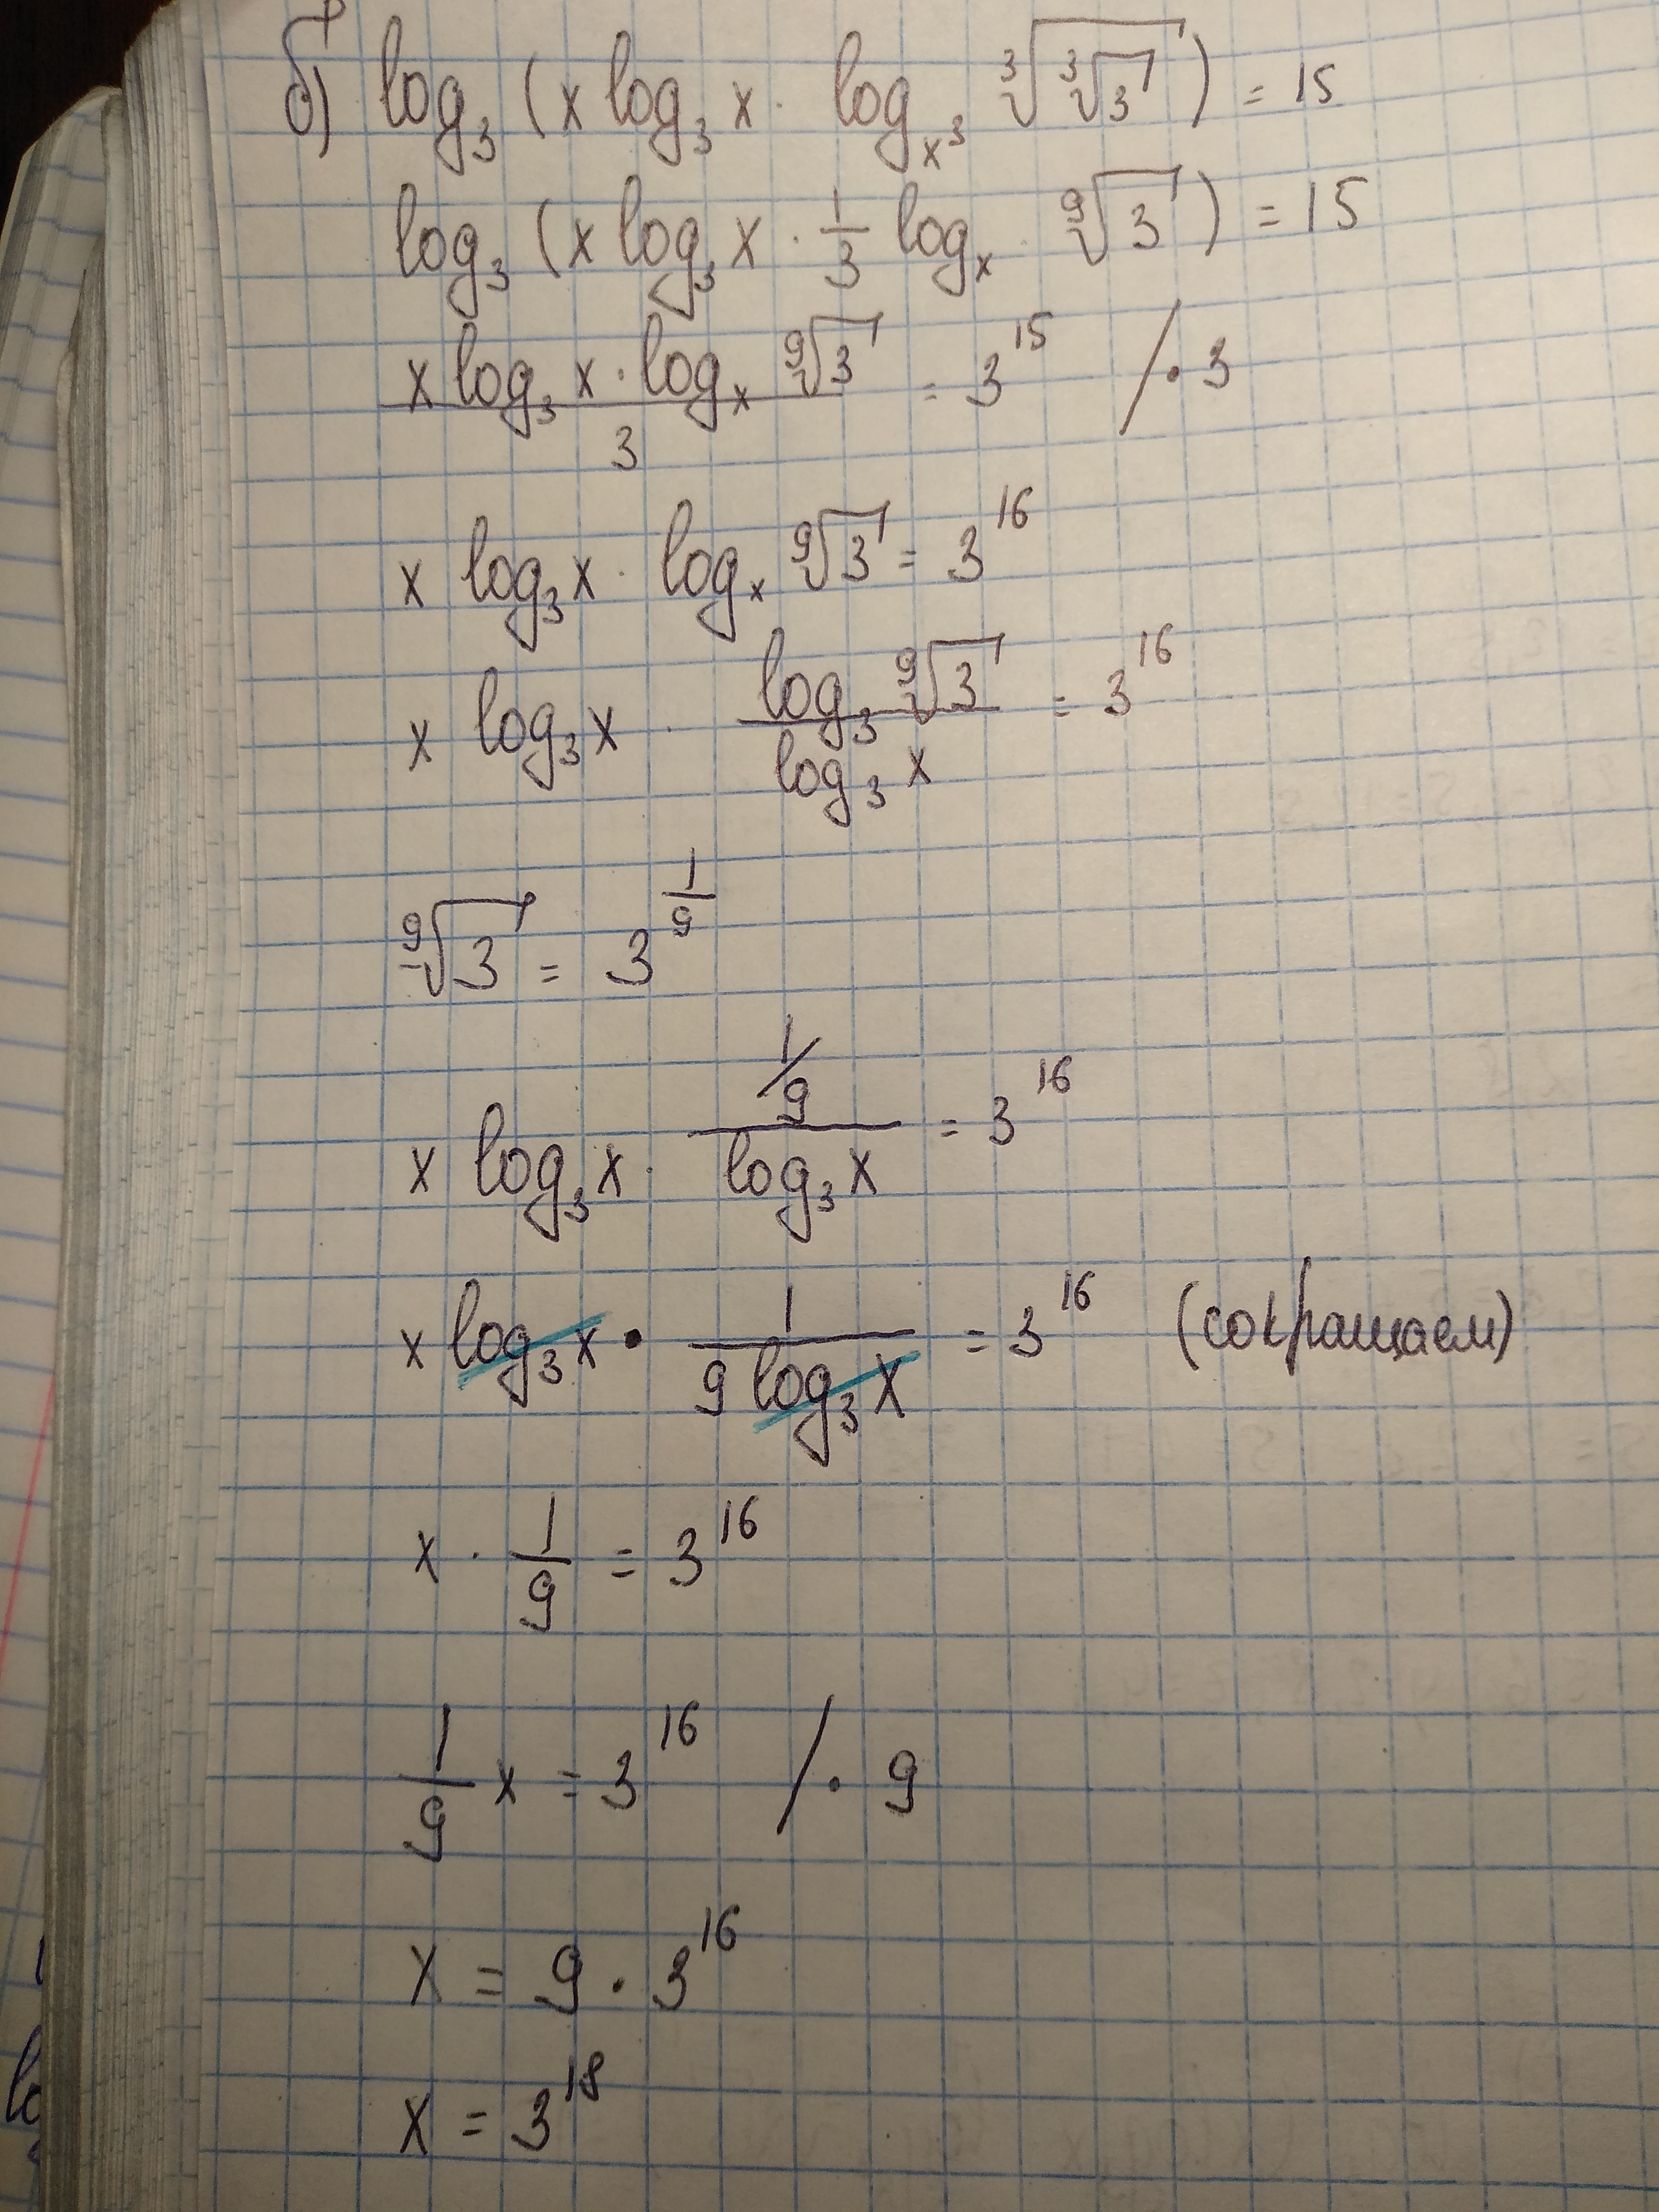 б) log₃ (x log₃ x · log_{x³} ∛(∛3)) = 15
log₃ (x log₃ x · 1/3 log_x · ⁹√3) = 15
(x log₃ x · log_x ⁹√3)/3 = 3¹⁵ / · 3
x log₃ x · log_x ⁹√3 = 3¹⁶
x log₃ x · (log₃ ⁹√3)/(log₃ x) = 3¹⁶
⁹√3 = 3^{1/9}
x log₃ x · (1/9)/(log₃ x) = 3¹⁶
x log₃ x · 1/(9 log₃ x) = 3¹⁶ (сокращаем)
x · 1/9 = 3¹⁶
1/9 x = 3¹⁶ / · 9
x = 9 · 3¹⁶
x = 3¹⁸